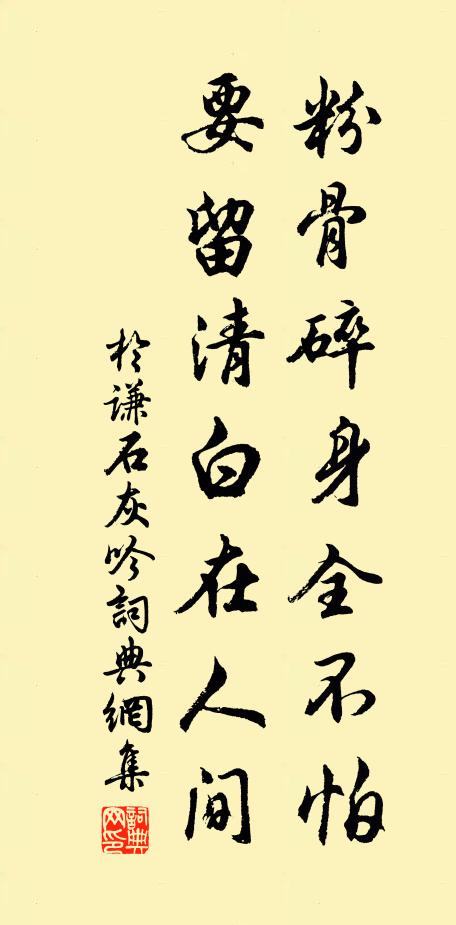 粉骨碎身全不怕
要留清白在人间
於谦石灰吟詞典網集
詞典网印